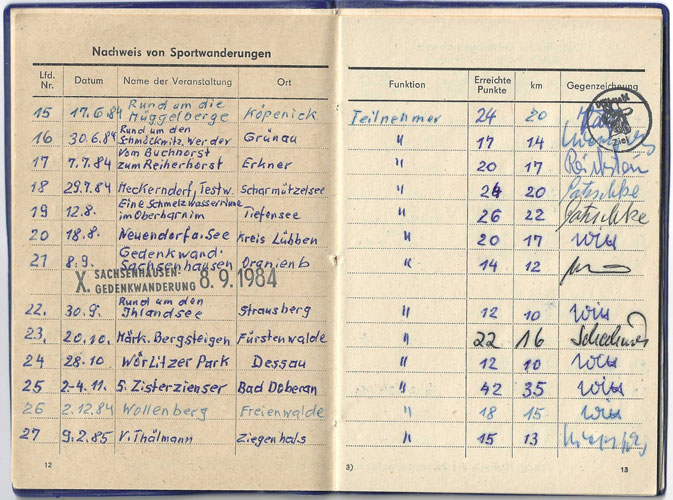 Nachweis von Sportwanderungen
Lfd. Nr. Datum Name der Veranstaltung Ort
15 17.6.84 Rund um die Müggelberge Köpenick
16 30.6.84 Rund um den Schmöckwitz. Werder Grünau
17 7.7.84 Vom Buchhorst zum Reiherhorst Erkner
18 29.7.84 Heckerndorf, Testw. Scharmützelsee
19 12.8. Eine Schmelzwasserrinne im Oberbarnim Tiefensee
20 18.8. Neuendorf a. See Kreis Lübben
21 8.9. Gedenkwand. Sachsenhausen Oranienb
X. SACHSENHAUSEN-
GEDENKWANDERUNG 8.9.1984
22. 30.9. Rund um den Ihlandsee Strausberg
23. 20.10. Märk. Bergsteigen Fürstenwalde
24 28.10 Wörlitzer Park Dessau
25 2-4.11. 5. Zisterzienser Bad Doberan
26 2.12.84 Wollenberg Freienwalde
27 9.2.85 V. Thälmann Ziegenhals
12
Funktion Erreichte Punkte km Gegenzeichnung
Teilnehmer 24 20
" 17 14
" 20 17
" 24 20 Gatschke
" 26 22 Gatschke
" 20 17
" 14 12
" 12 10
" 22 16
" 12 10
" 42 35
" 18 15
" 15 13
Ziel
3) 13